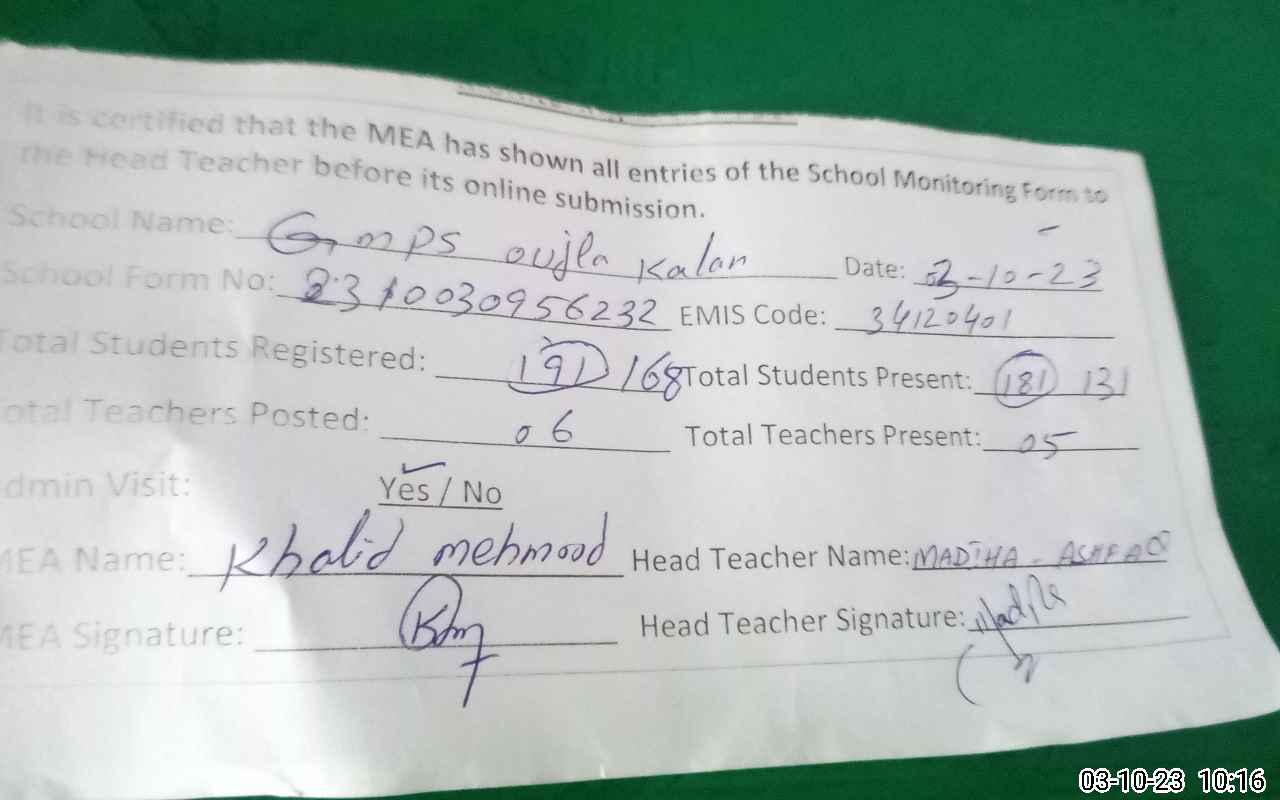 It is certified that the MEA has shown all entries of the School Monitoring Form to
the Head Teacher before its online submission.
School Name: Gmps oujla Kalan Date: 03-10-23
School Form No: 2310030956232 EMIS Code: 34120401
Total Students Registered: 191 168 Total Students Present: 181 131
Total Teachers Posted: 06 Total Teachers Present: 05
dmin Visit: Yes / No
MEA Name: Khalid mehmood Head Teacher Name: MADIHA - ASHFAQ
MEA Signature: Km Head Teacher Signature: Madiha
03-10-23 10:16